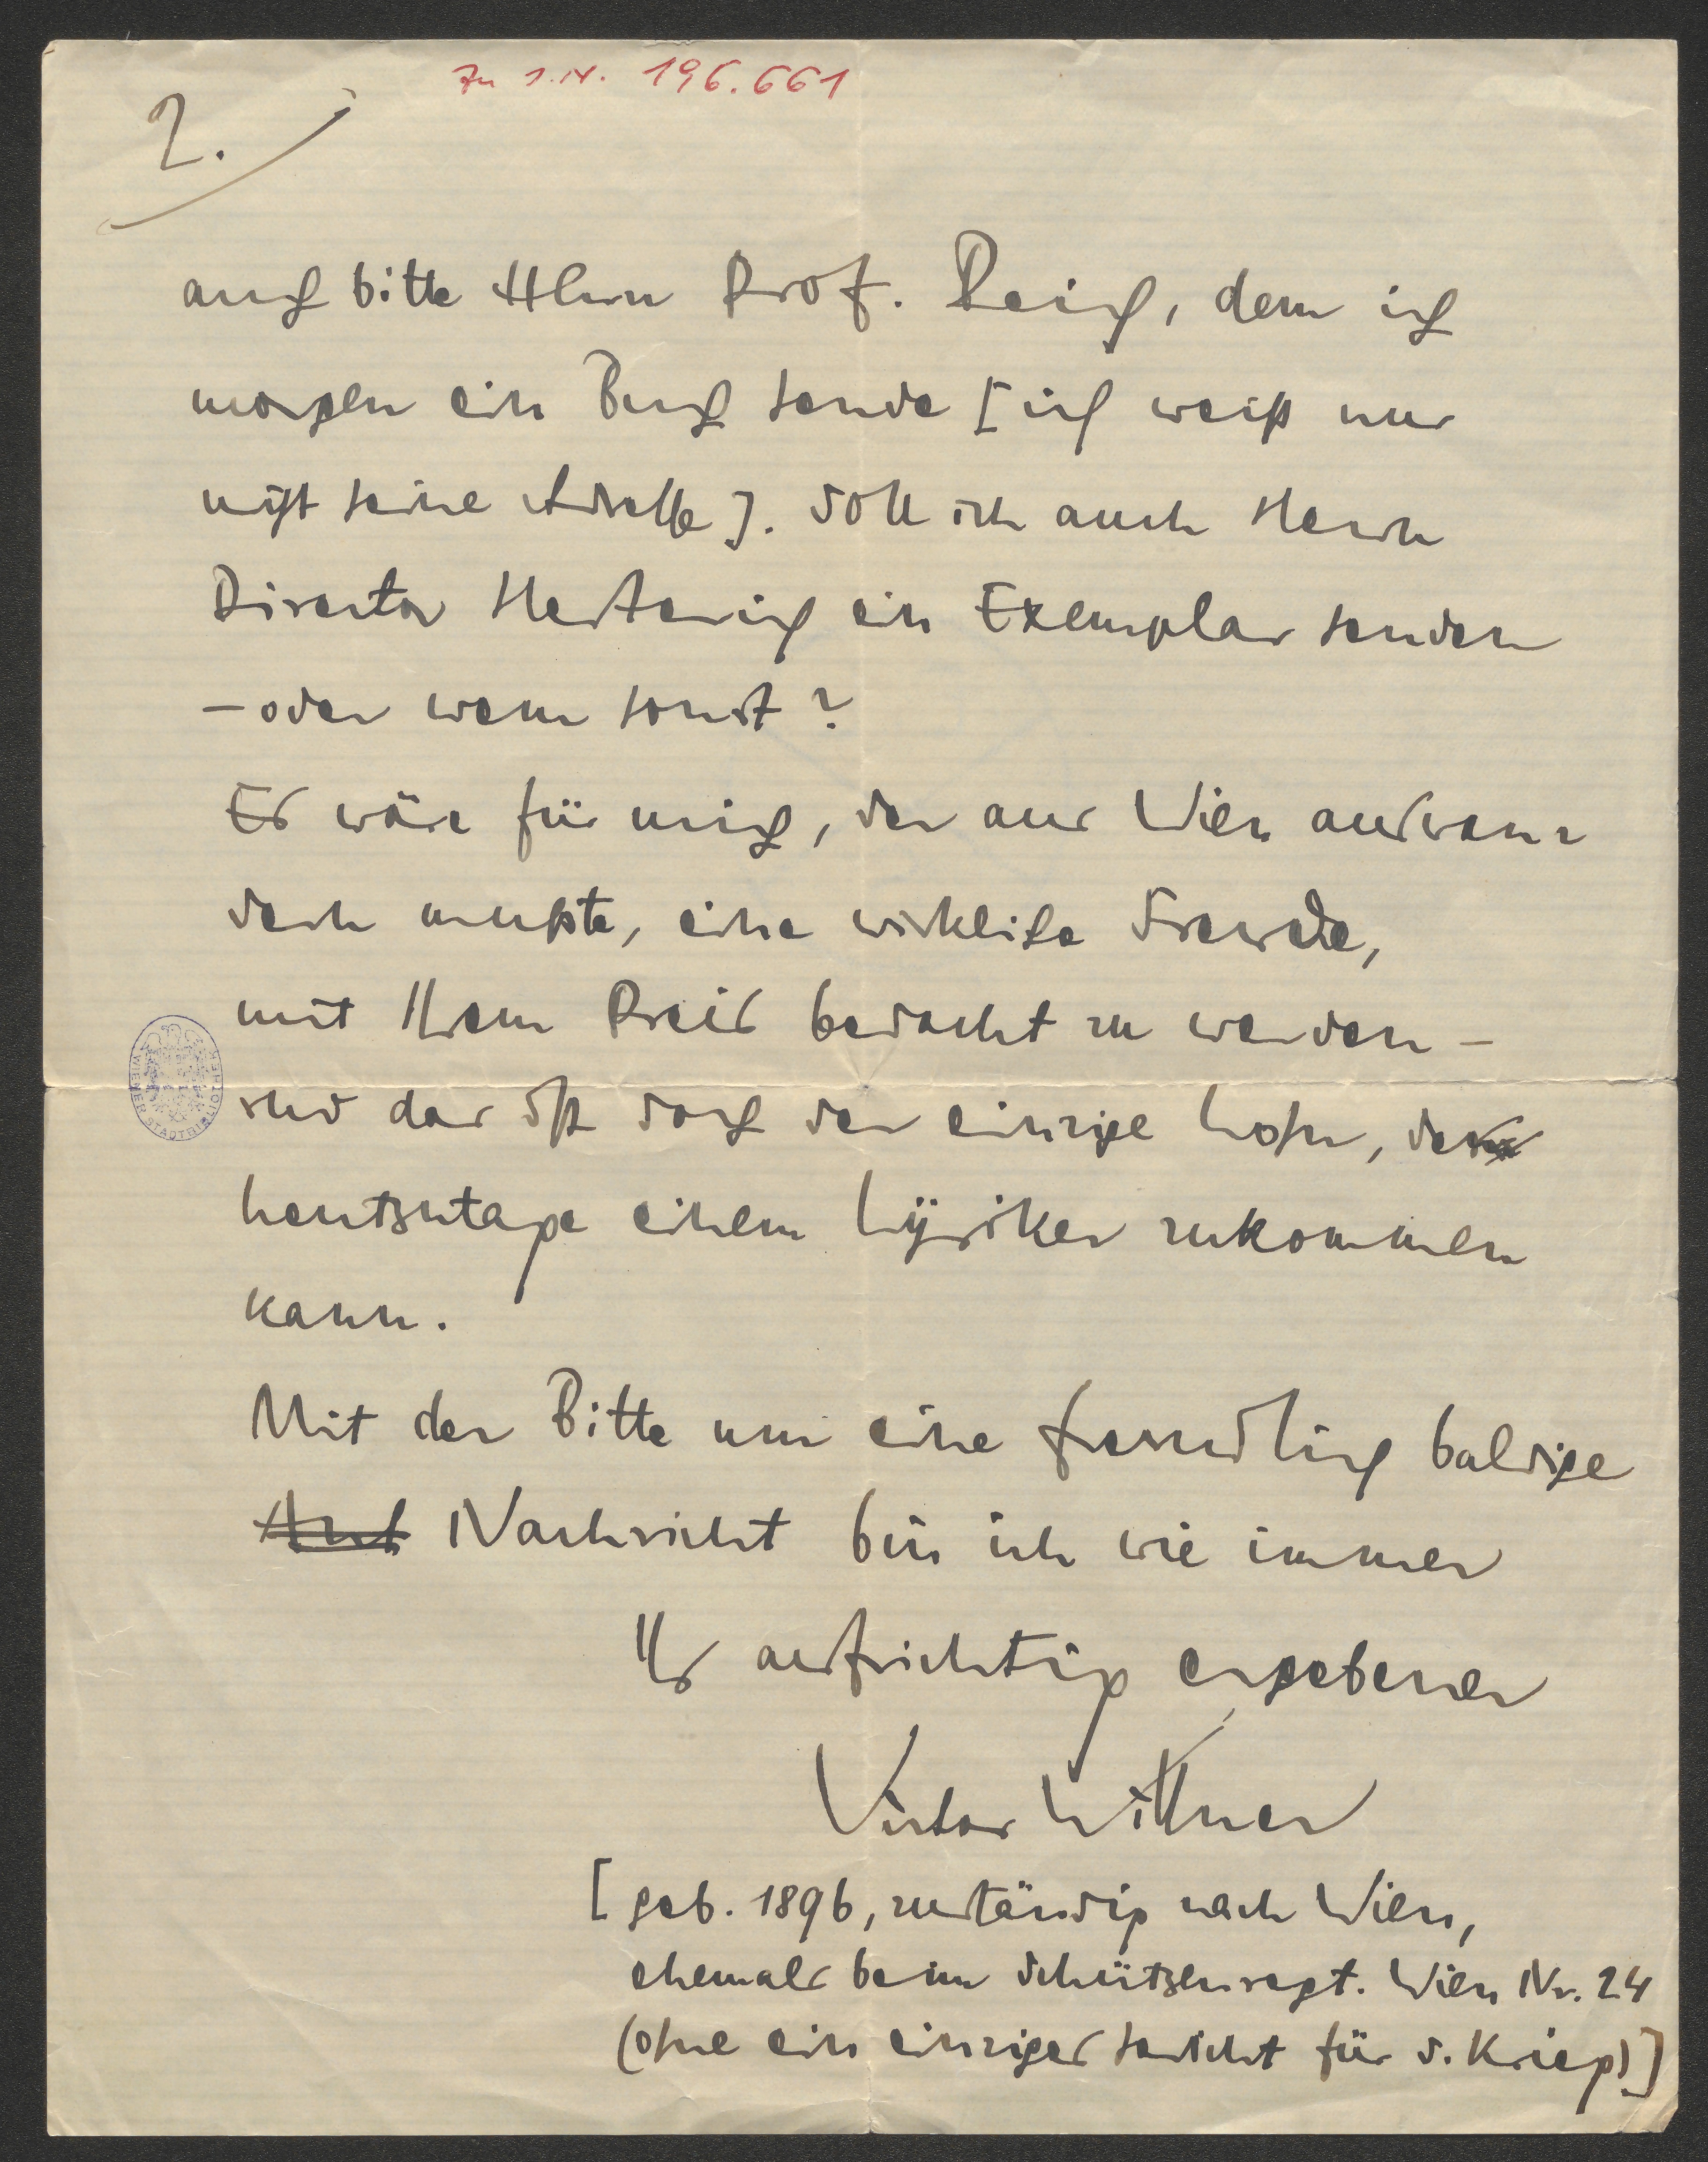 Zu I.N. 196.661
2.
auch bitte Herrn Prof. Reich, dem ich
morgen ein Buch sende [ich weiß nur
nicht seine Adresse]. Soll ich auch Herrn
Director Herterich ein Exemplar senden
– oder wem sonst?
Es wäre für mich, der aus Wien auswan-
dern mußte, eine wirkliche Freude,
mit Ihrem Preis bedacht zu werden –
und das ist doch der einzige Lohn, der
heutzutage einem Lyriker zukommen
kann.
Mit der Bitte um eine freundlich baldige
Ant Nachricht bin ich wie immer
Ihr aufrichtig ergebener
Victor Wittner
[geb. 1896, zuständig nach Wien,
ehemals beim Schützenregt. Wien Nr. 24
(ohne ein einziges Gedicht für d. Krieg)]
WIENER STADTBIBLIOTHEK